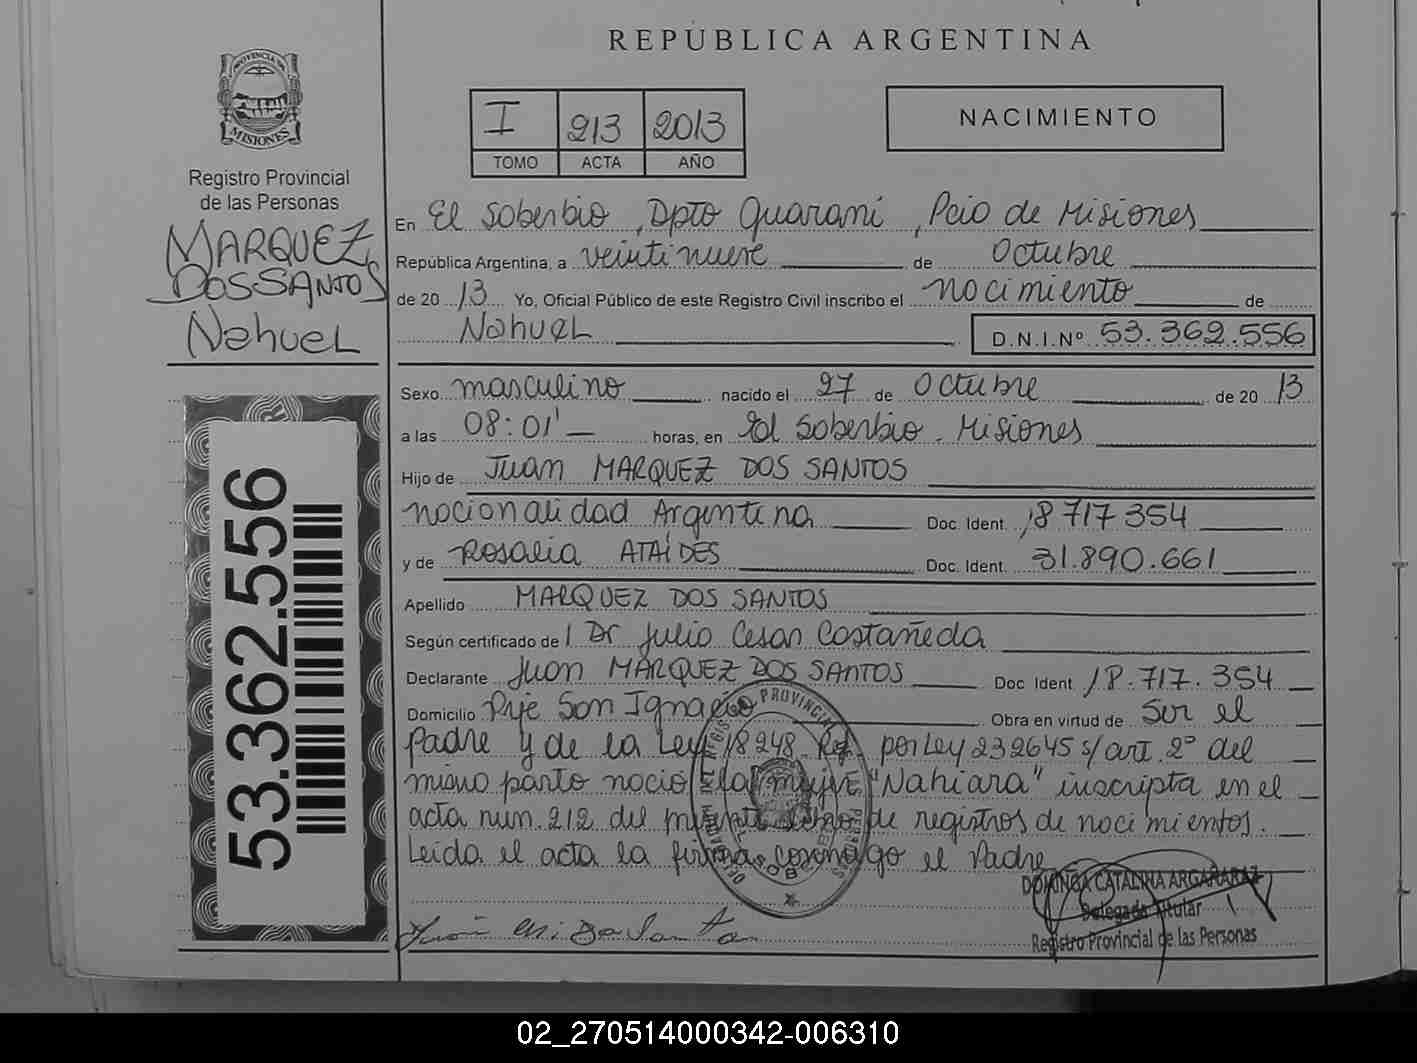 REPÚBLICA ARGENTINA
PROVINCIA DE
MISIONES
Registro Provincial
de las Personas
MARQUEZ
DOS SANTOS
Nahuel
53.362.556
I 213 2013
TOMO ACTA AÑO
NACIMIENTO
En El Soberbio, Dpto Guarani, Pcio de Misiones
República Argentina, a veintinueve de Octubre
de 20 13 Yo, Oficial Público de este Registro Civil inscribo el nacimiento de
Nahuel D.N.I.Nº 53.362.556
Sexo masculino nacido el 27 de Octubre de 20 13
a las 08:01' horas, en El Soberbio. Misiones
Hijo de Juan MARQUEZ DOS SANTOS
nacionalidad Argentina Doc. Ident. 18717354
y de Rosalia ATAÍDES Doc. Ident. 31.890.661
Apellido MARQUEZ DOS SANTOS
Según certificado de Dr Julio Cesar Castañeda
Declarante Juan MARQUEZ DOS SANTOS Doc Ident 18.717.354
Domicilio Pje San Ignacio Obra en virtud de Ser el
Padre y de la Ley 18248. Ref. por Ley 232645 s/art. 2º del
mismo parto nació la "Nahiara" inscripta en el
acta num. 212 del libro de registros de nacimientos.
Leida el acta la firma conmigo el Padre
DOMINGA CATALINA ARGAÑARAZ
Delegada Titular
Registro Provincial de las Personas
02_270514000342-006310